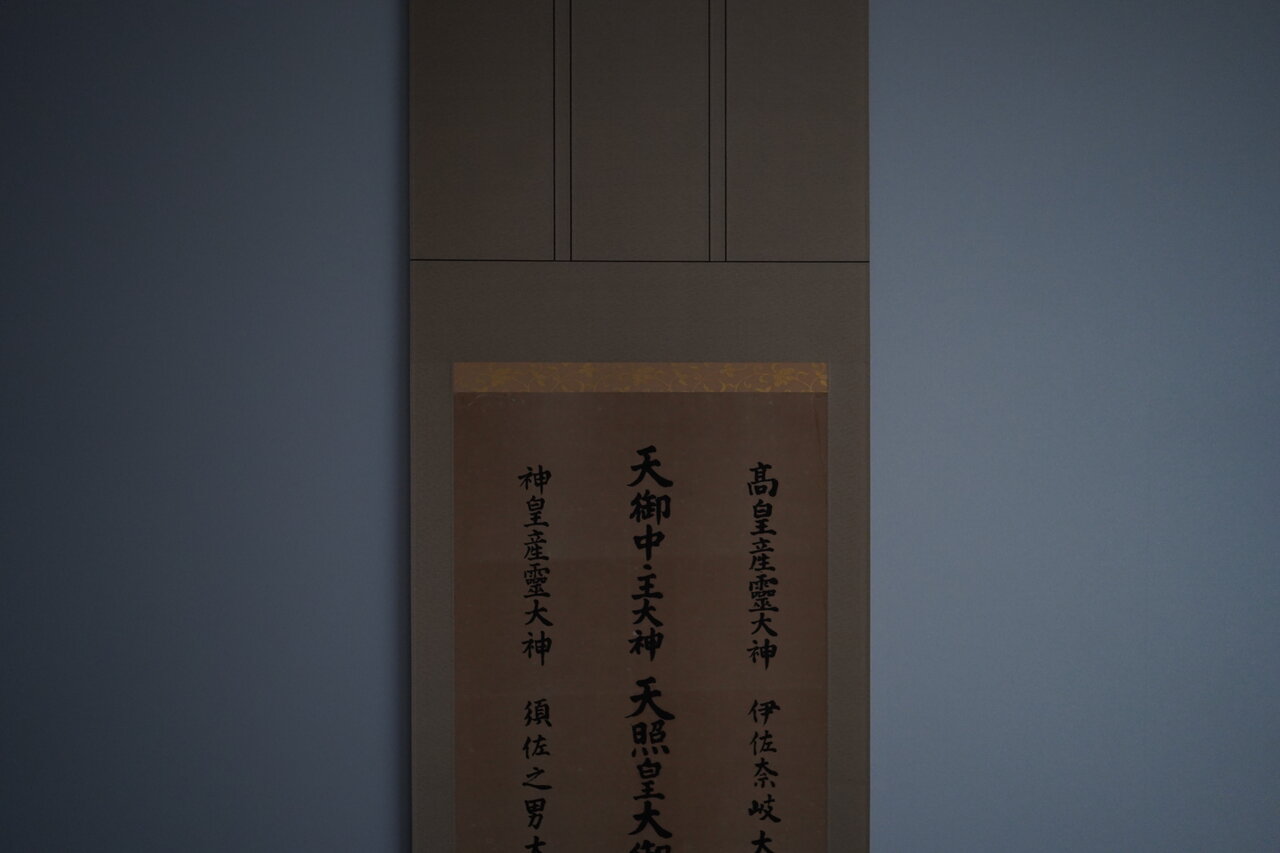 髙皇産靈大神 伊佐奈岐大
天御中主大神 天照皇大御
神皇産靈大神 須佐之男大